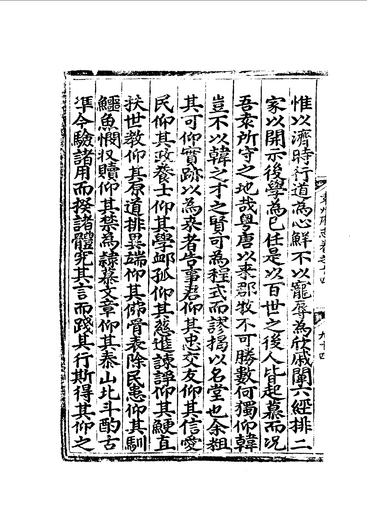 惟以濟時行道為心鮮不以寵辱為欣戚闡六經排二
家以開示後學為已任是以百世之後人皆起慕而况
吾袁所守之地哉粤唐以來郡牧不可勝數何獨仰韓
豈不以韓之才之賢可為程式而謬揭以名堂也余粗
其可仰實跡以為來者告事君仰其忠交友仰其信愛
民仰其政養士仰其學䘏孤仰其慈進諫諍仰其鯁直
扶世教仰其原道排異端仰其佛骨表除民患仰其馴
鱷魚憫奴贖仰其禁為隷慕文章仰其泰山北斗酌古
凖今驗諸用而揆諸體究其言而踐其行斯得其仰之